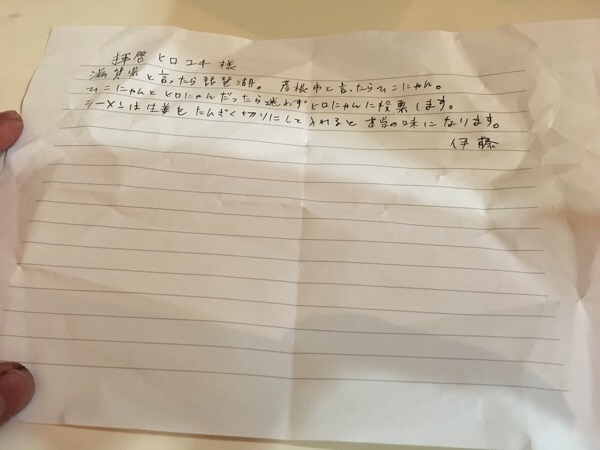 拝啓 ヒロユキ様
滋賀県と言ったら琵琶湖。 彦根市と言ったらひこにゃん。
ひこにゃんとヒロにゃんだったら迷わずヒロにゃんに投票します。
ラーメンは生姜をたんざく切りにして入れると本当の味になります。
伊藤